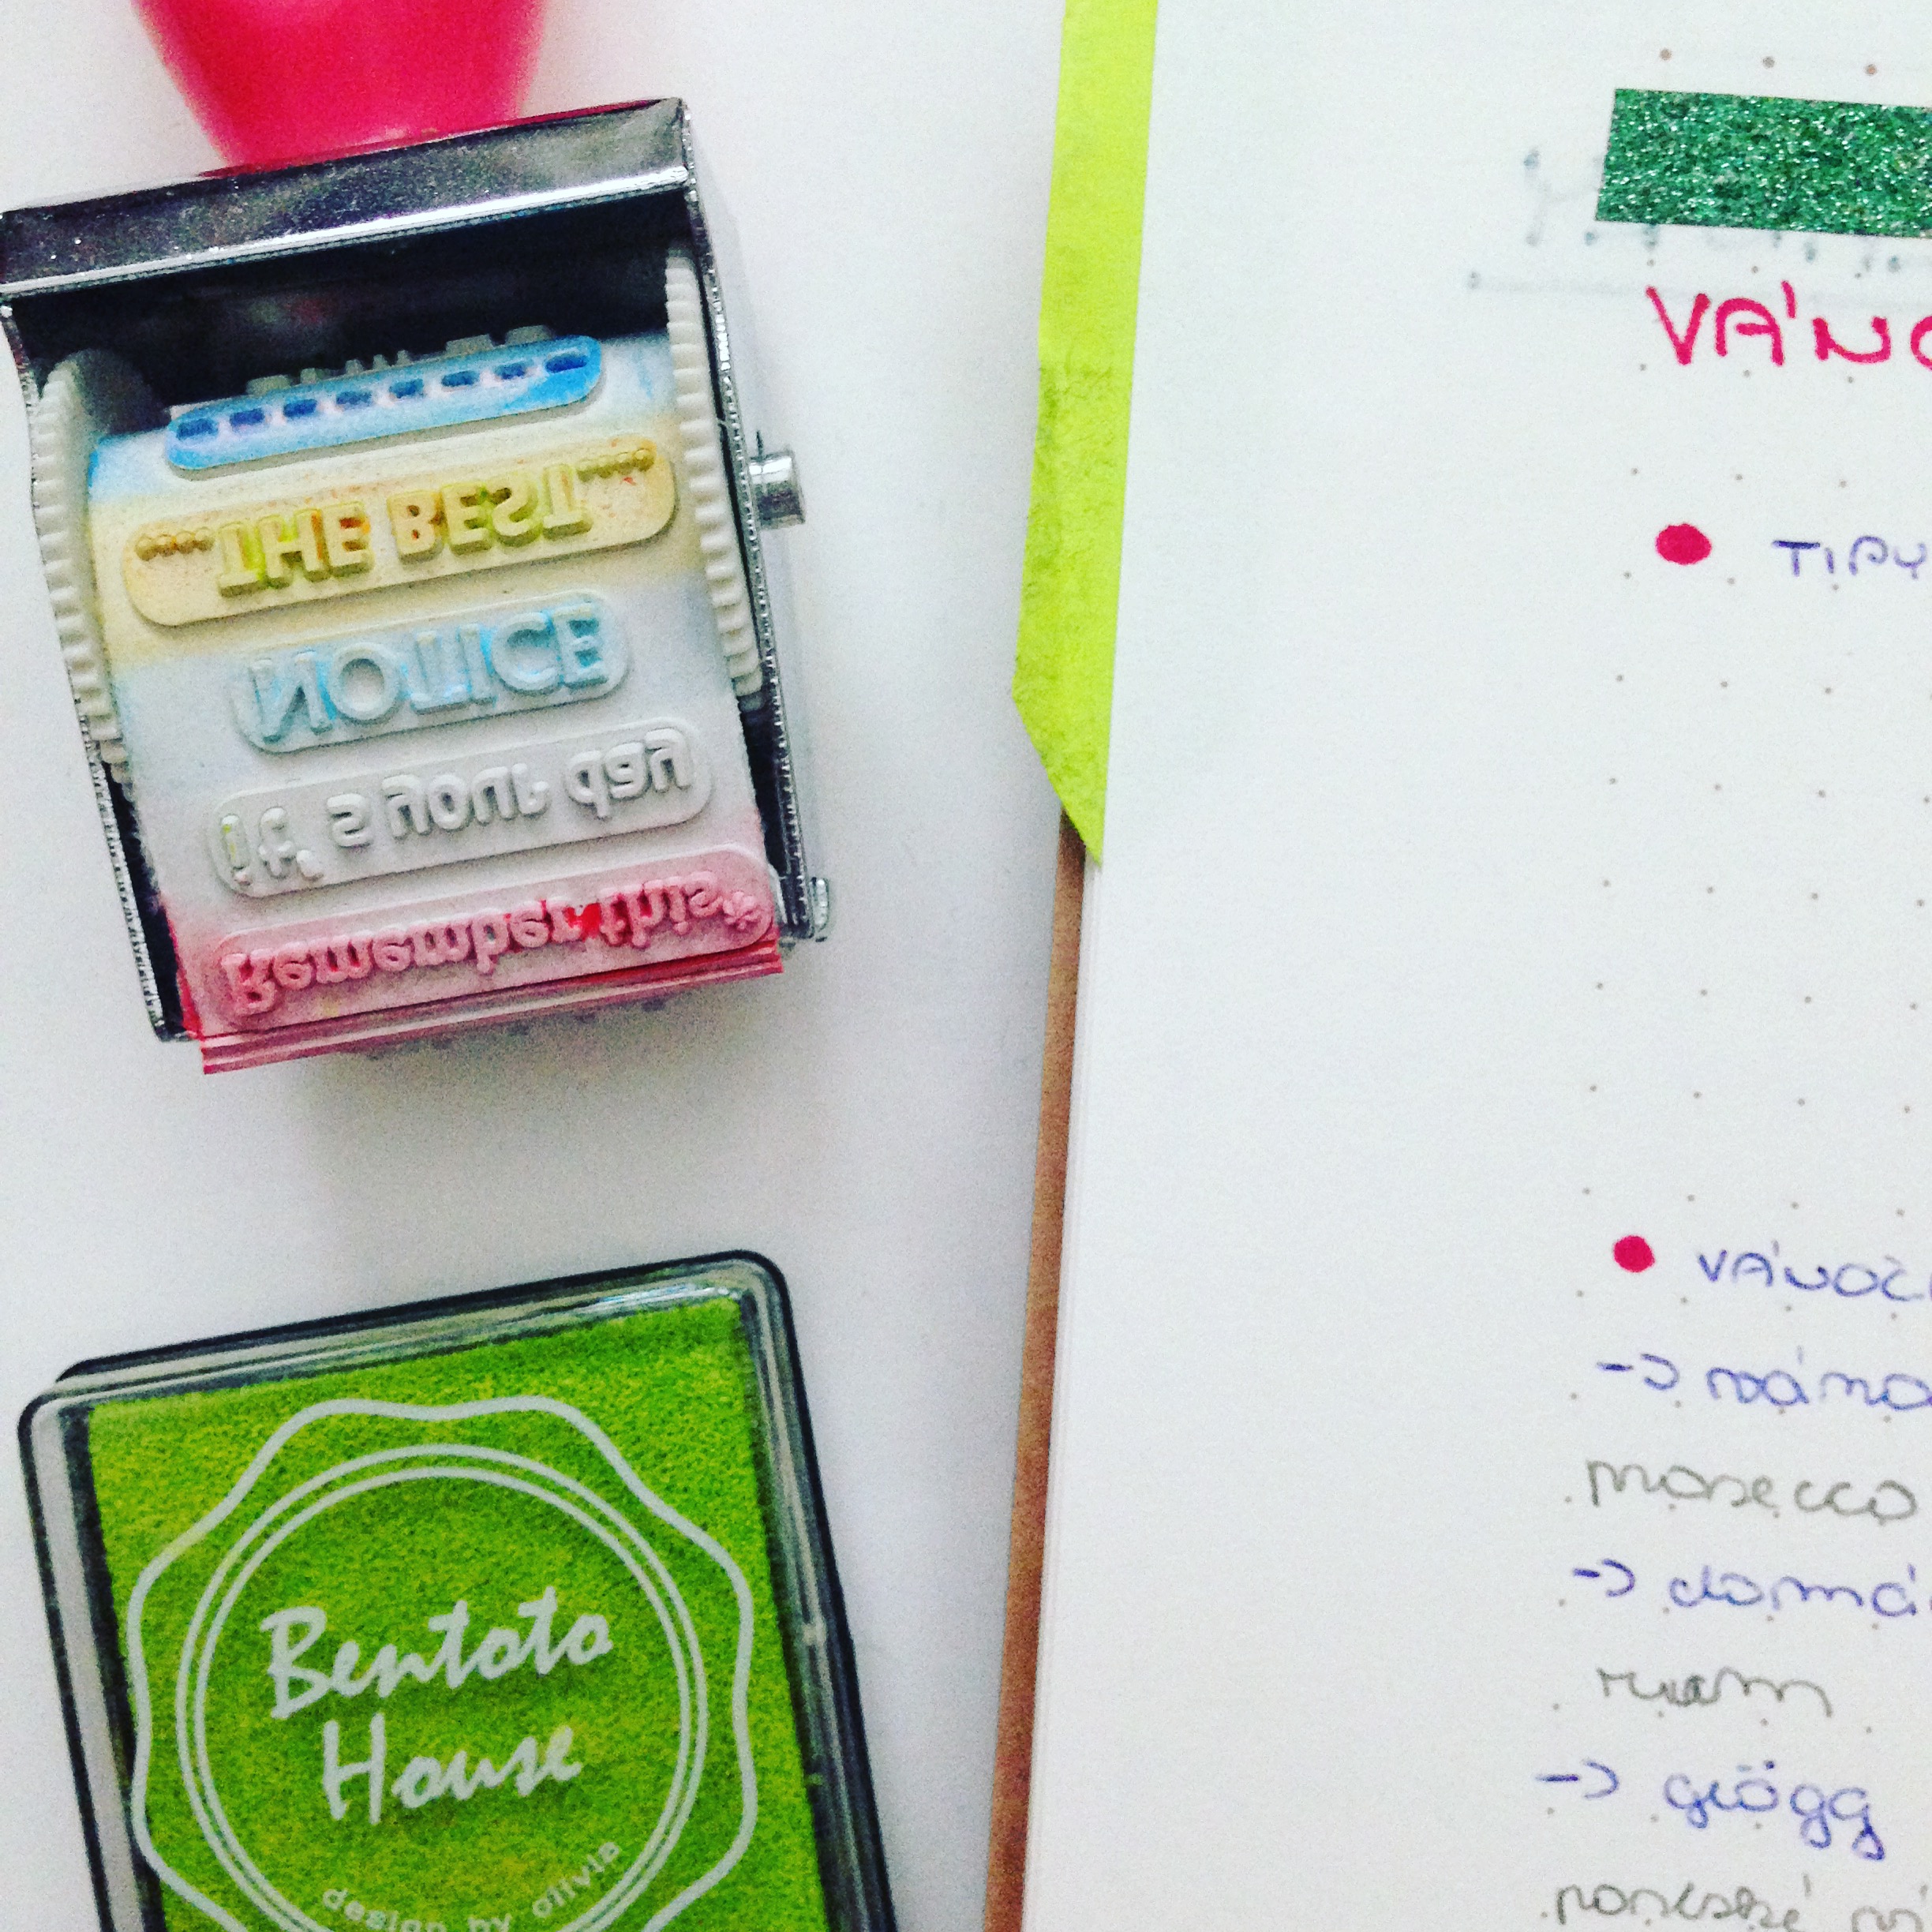 "THE BEST"
NOTICE
it's your day
Remember this*
Bentoto
House
design by olivia
VÁNO
TIPY
VÁNOČ
prosecco
→ domá
rum
→ glögg